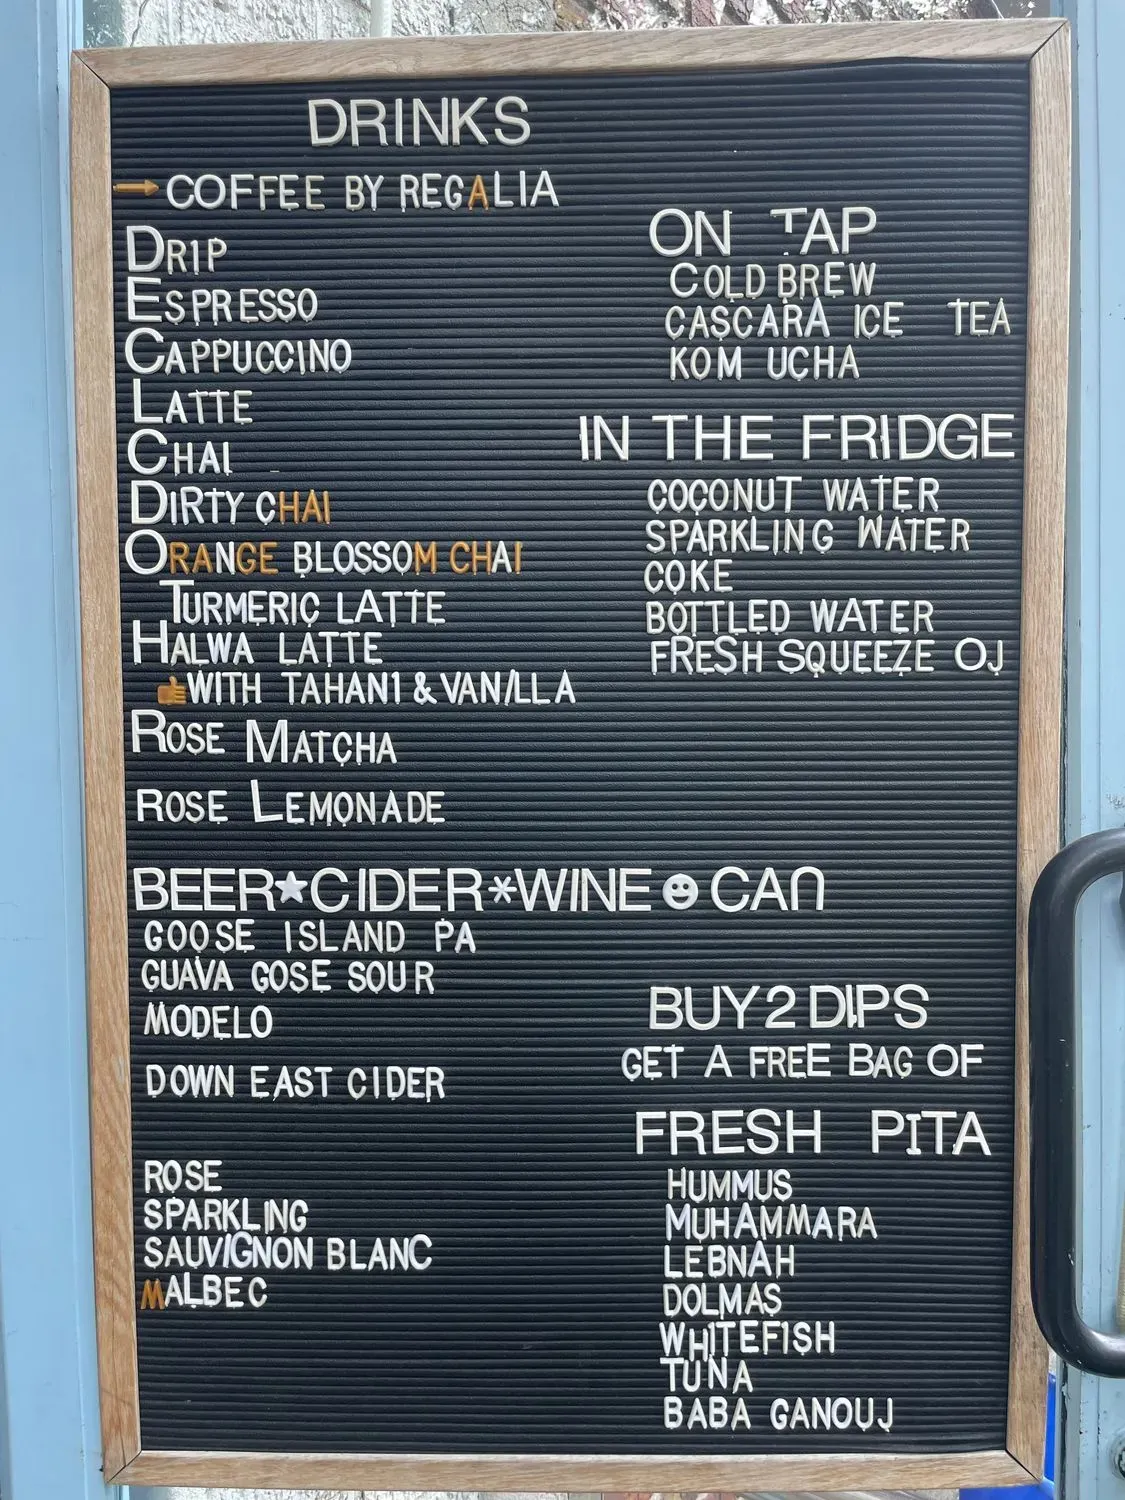 DRINKS
COFFEE BY REGALIA
DRIP
ESPRESSO
CAPPUCCINO
LATTE
CHAI
DIRTY CHAI
ORANGE BLOSSOM CHAI
TURMERIC LATTE
HALWA LATTE
WITH TAHANI & VANILLA
ROSE MATCHA
ROSE LEMONADE
ON TAP
COLD BREW
CASCARA ICE TEA
KOM UCHA
IN THE FRIDGE
COCONUT WATER
SPARKLING WATER
COKE
BOTTLED WATER
FRESH SQUEEZE OJ
BEER★CIDER*WINE☻CAN
GOOSE ISLAND PA
GUAVA GOSE SOUR
MODELO
DOWN EAST CIDER
ROSE
SPARKLING
SAUVIGNON BLANC
MALBEC
BUY 2 DIPS
GET A FREE BAG OF
FRESH PITA
HUMMUS
MUHAMMARA
LEBNAH
DOLMAS
WHITEFISH
TUNA
BABA GANOUJ